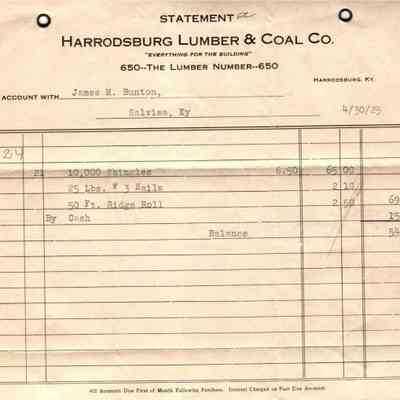 STATEMENT
HARRODSBURG LUMBER & COAL CO.
"EVERYTHING FOR THE BUILDING"
650--THE LUMBER NUMBER--650
HARRODSBURG, KY.
ACCOUNT WITH James M. Bunton,
Salvisa, Ky 4/30/25
24
21 10,000 Shingles 6.50 65 00
25 Lbs. # 3 Nails 2 10
50 Ft. Ridge Roll 2 50 69
By Cash 15
Balance 54
All Accounts Due First of Month Following Purchase. Interest Charged on Past Due Accounts.